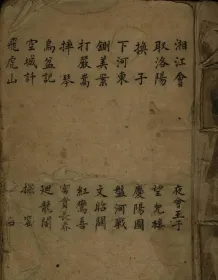 湘江會
取洛陽
換子
下河東
鍘美案
打嚴嵩
摔琴
烏盆記
空城計
飛虎山
夜會王子
望兒樓
慶陽圖
盤河戰
文昭關
紅鸞喜
富貴長春
迴龍閣
探窰